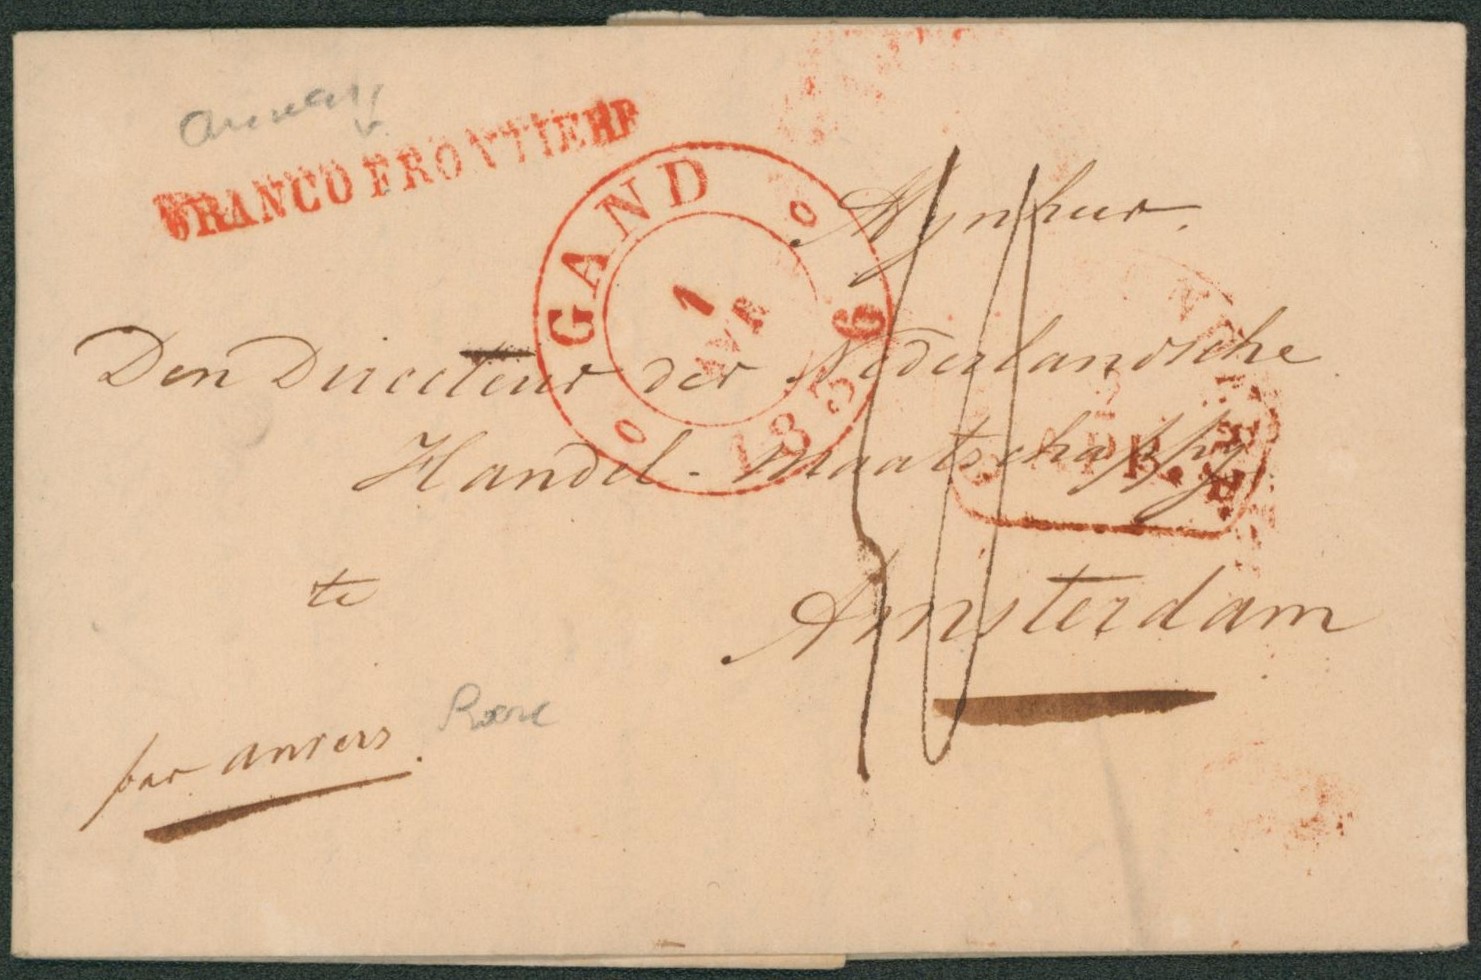 FRANCO FRONTIERE
GAND
1
AVR
1836
Mynheer
Den Directeur der Nederlandsche
Handel-Maatschappy
te
Amsterdam
APR.
par anvers.
Rare